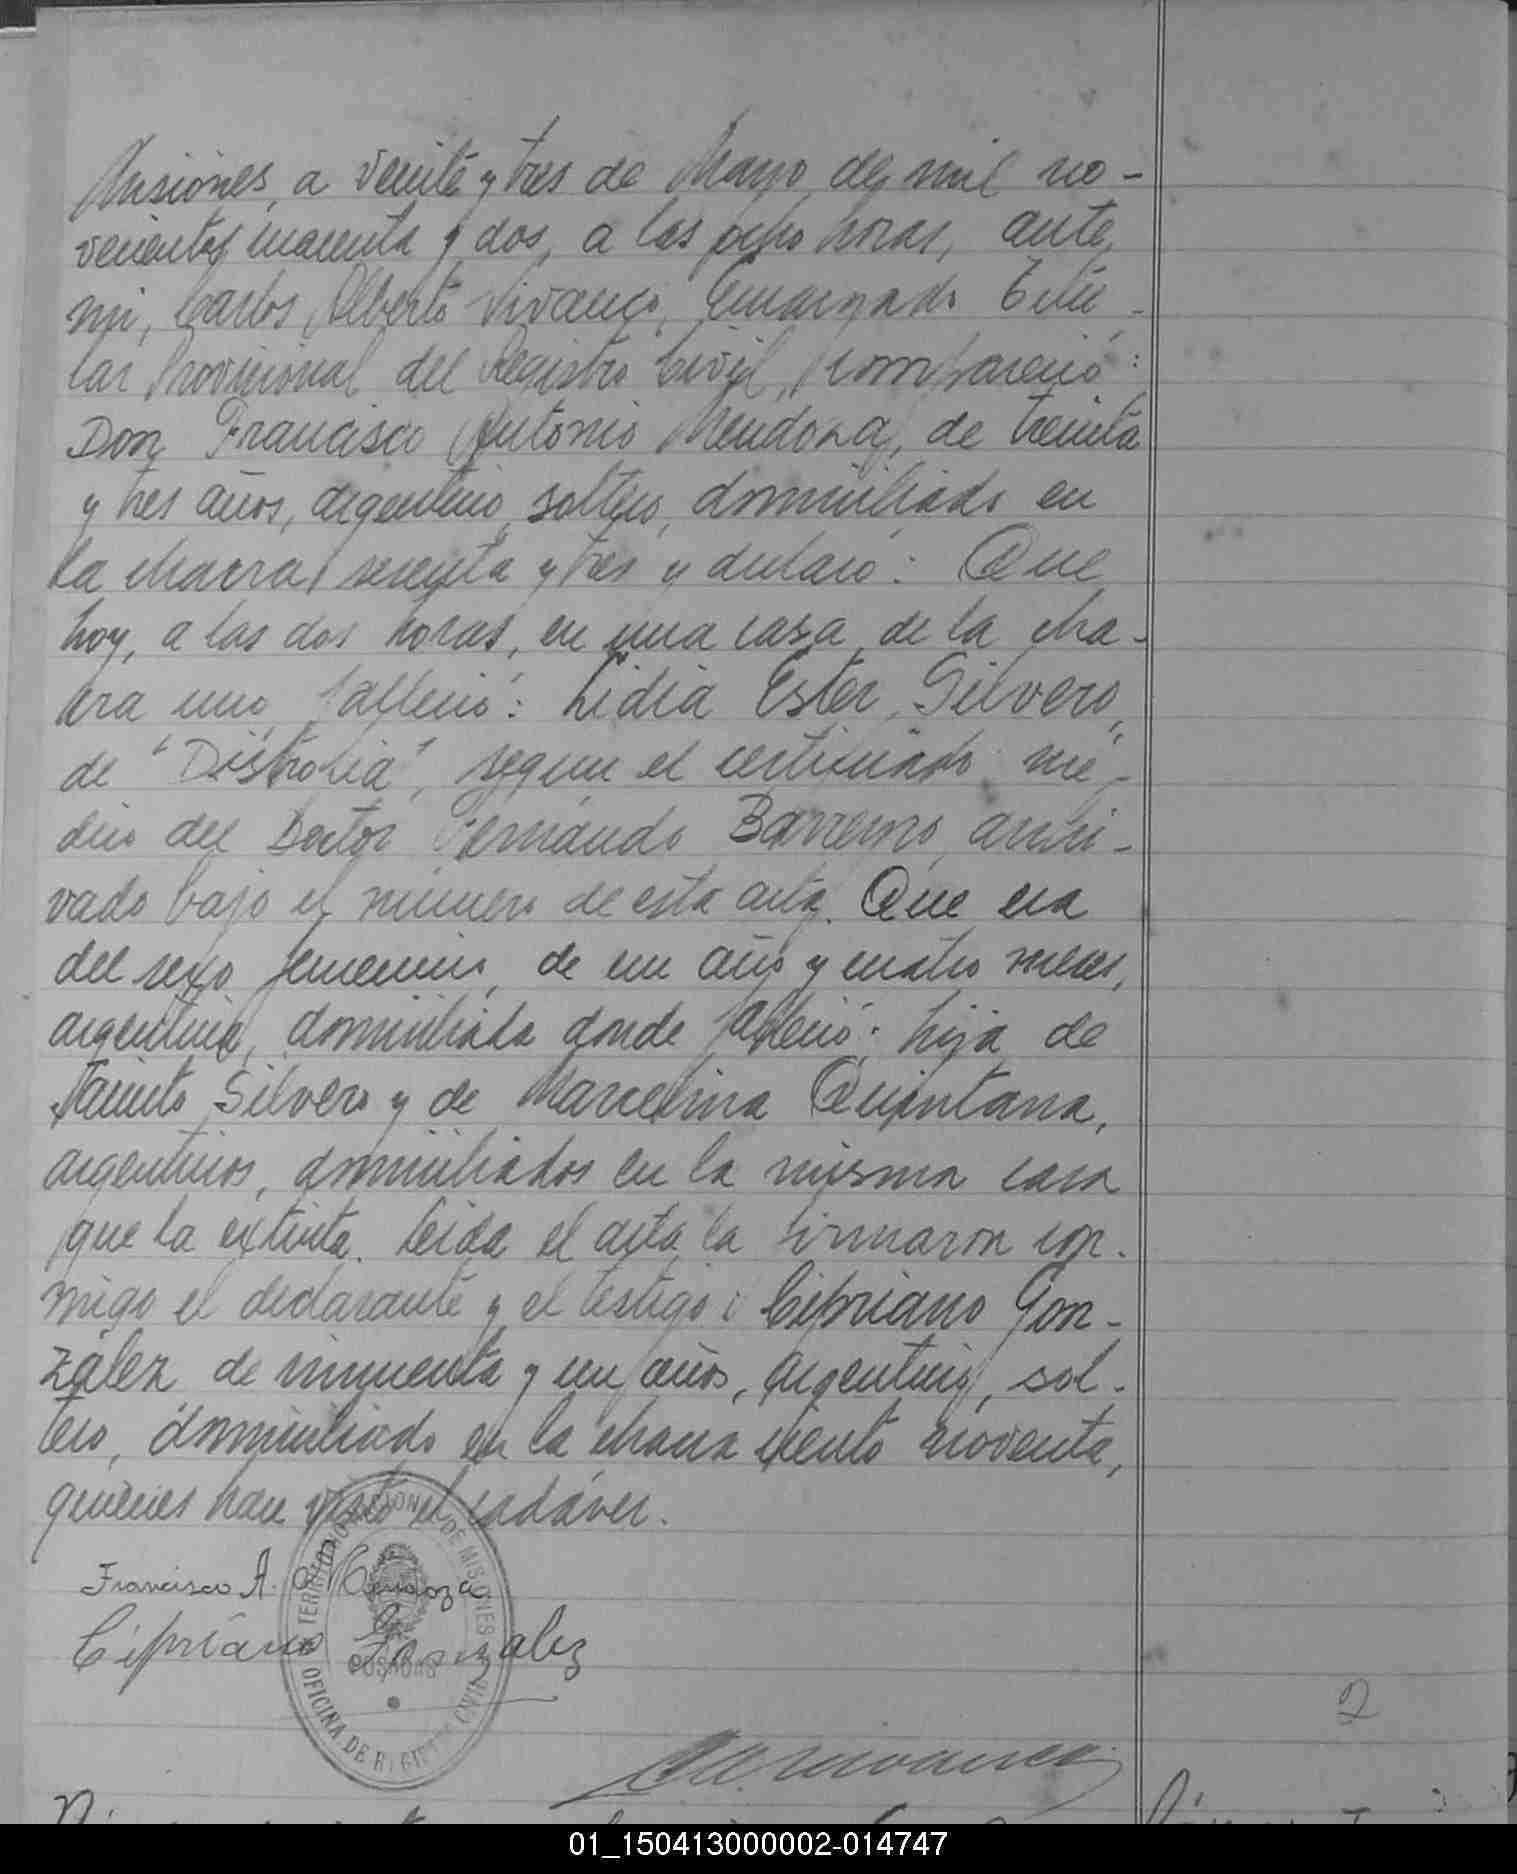 Misiones, a veinte y tres de Mayo de mil no-
vecientos cuarenta y dos, a las ocho horas, ante
mi, Carlos Alberto Vivanco, Encargado Titu-
lar Provisional del Registro Civil, compareció:
Don Francisco Antonio Mendoza, de treinta
y tres años, argentino, soltero, domiciliado en
la chacra sesenta y tres y declaró: Que
hoy, a las dos horas, en una casa de la cha-
cra uno, falleció: Lidia Ester Silvero,
de "Distrofia", segun el certificado mé-
dico del Doctor Fernando Barreyro, archi-
vado bajo el número de esta acta. Que era
del sexo femenino, de un año y cuatro meses,
argentina, domiciliada donde falleció: hija de
Jacinto Silvero y de Marcelina Quintana,
argentinos, domiciliados en la misma casa
que la extinta. Leida el acta la firmaron con-
migo el declarante y el testigo: Cipriano Gon-
zález de cincuenta y un años, argentino, sol-
tero, domiciliado en la chacra ciento noventa,
quienes han visto el cadáver.
Francisco A. Mendoza
Cipriano Gonzalez
TERRITORIO NACIONAL DE MISIONES
POSADAS
OFICINA DE REGISTRO CIVIL
2
01_150413000002-014747